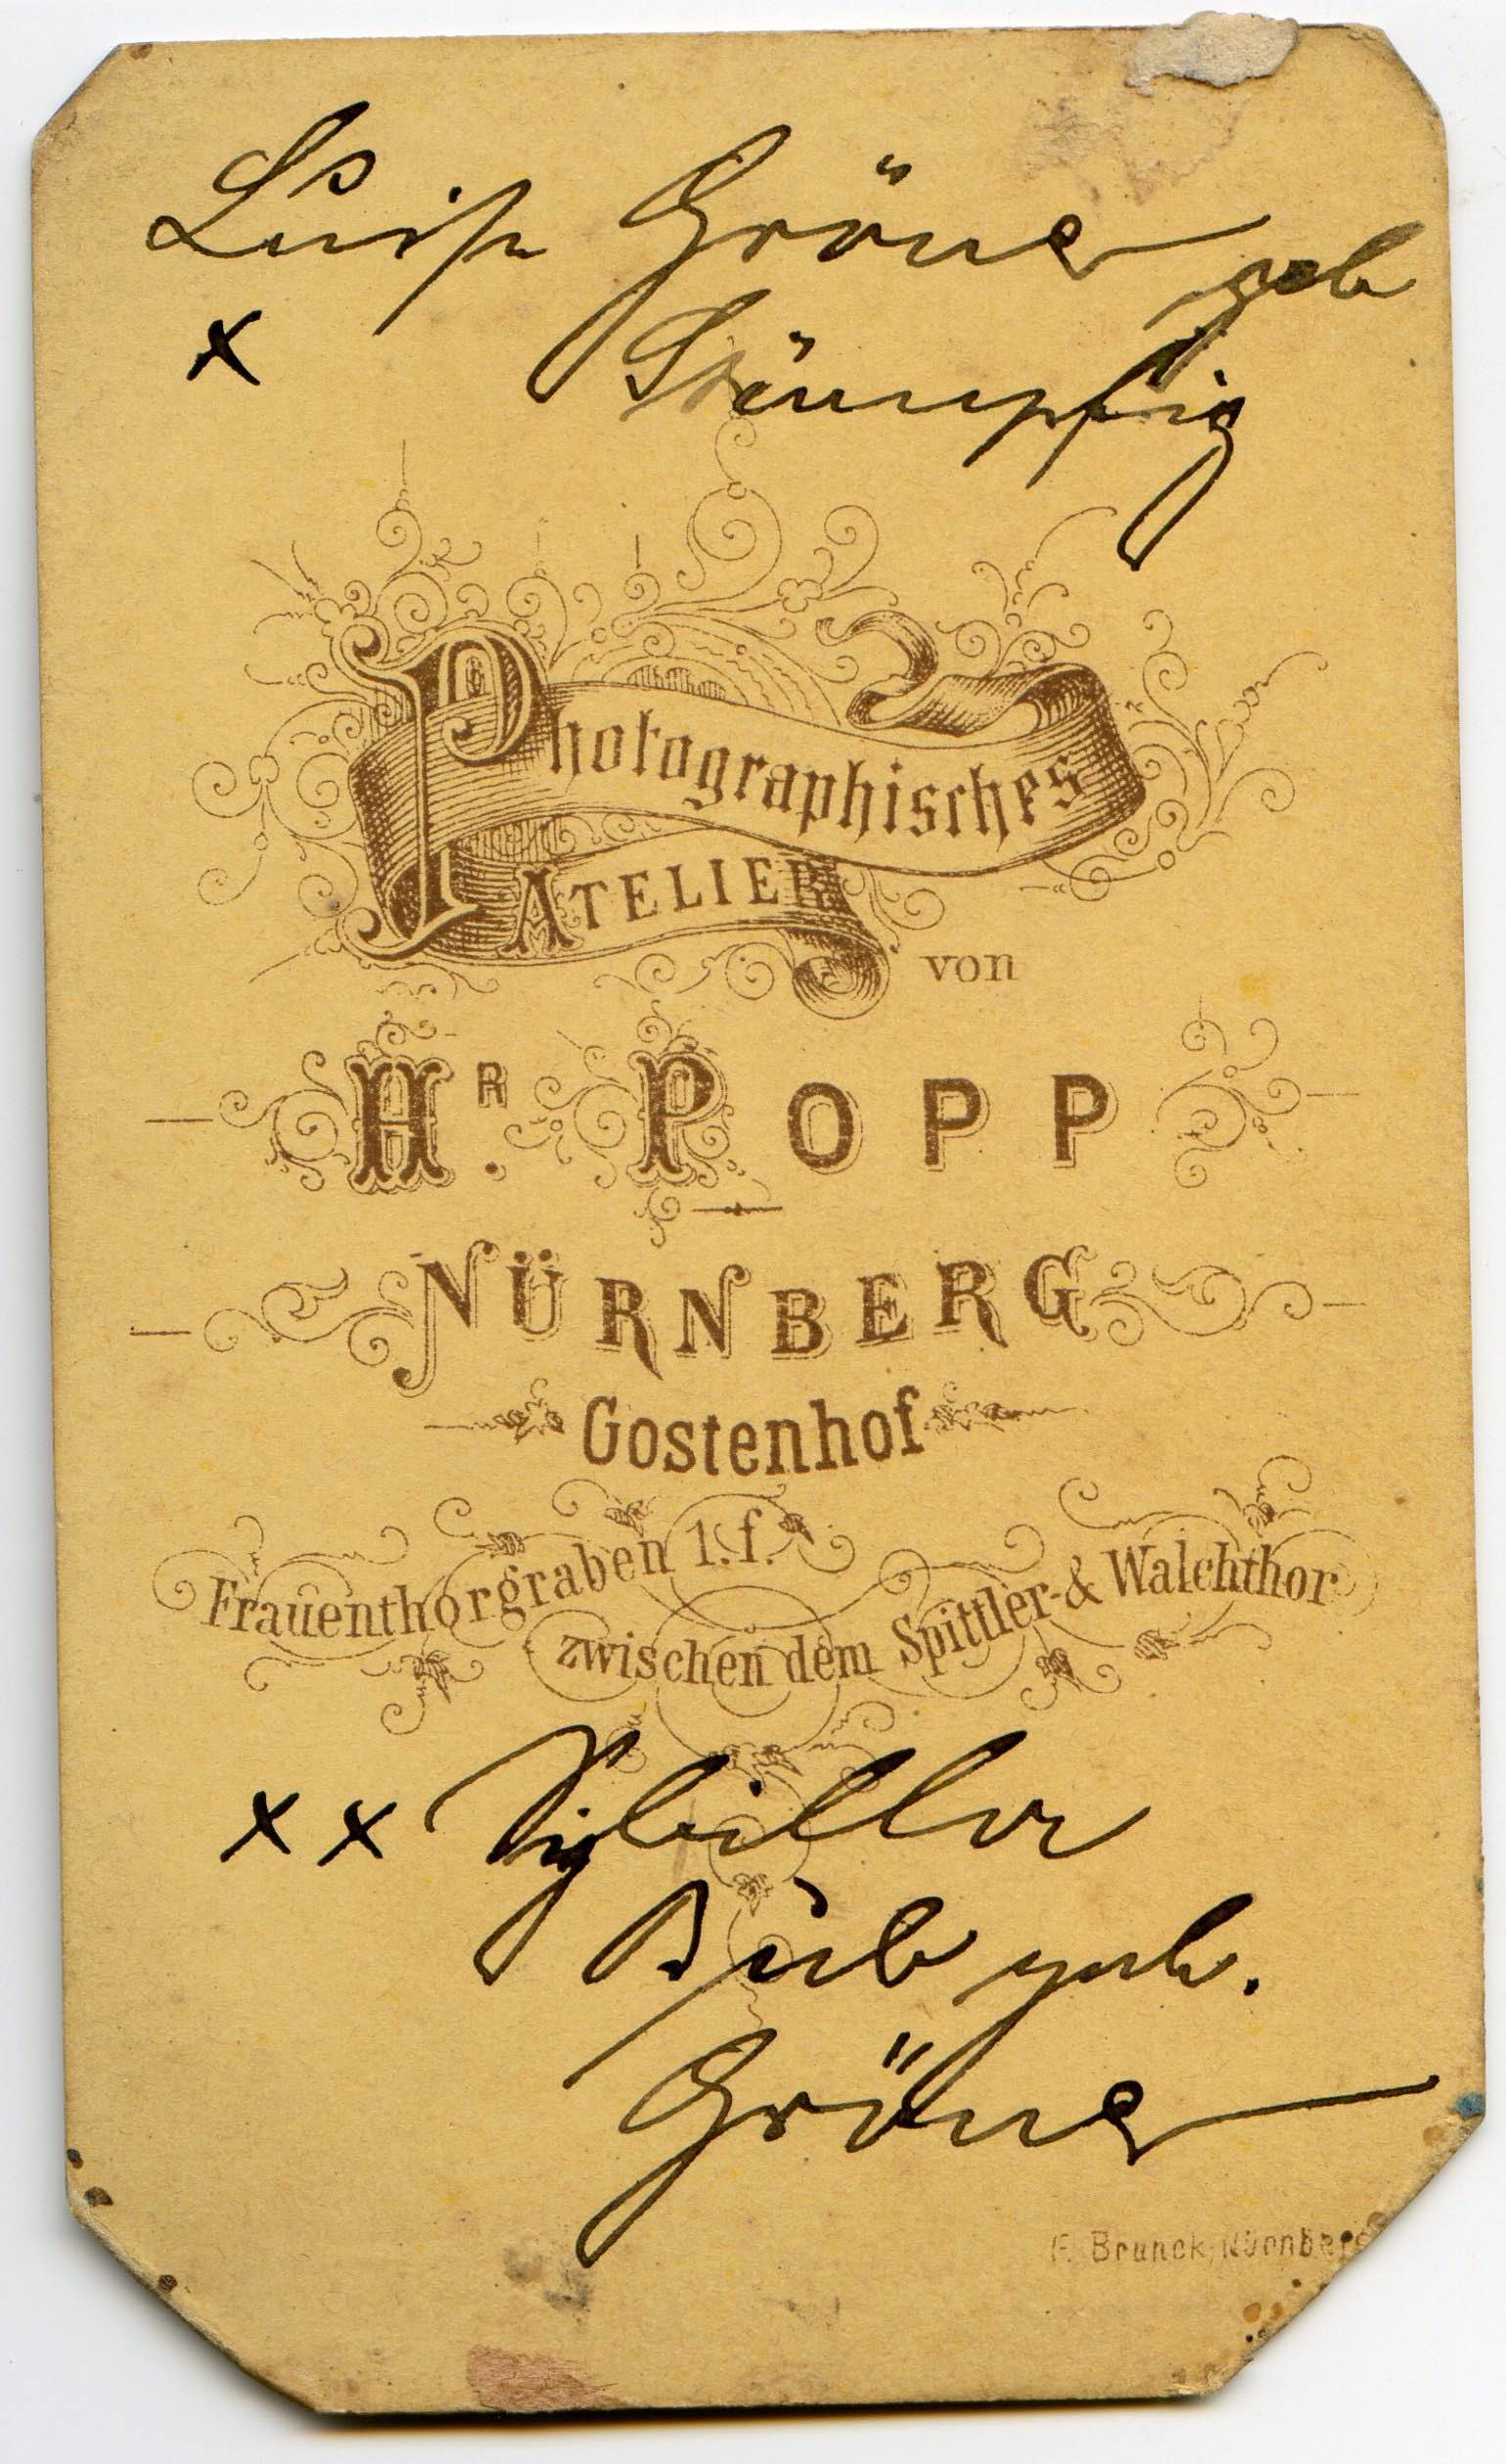 Luise Gröner geb
x Stümpfig
Photographisches
ATELIER
von
HR. POPP
NÜRNBERG
Gostenhof
Frauenthorgraben 1. f.
zwischen dem Spittler- & Walchthor
x x Sybilla
geb.
Gröner
F. Brunck, Nürnberg